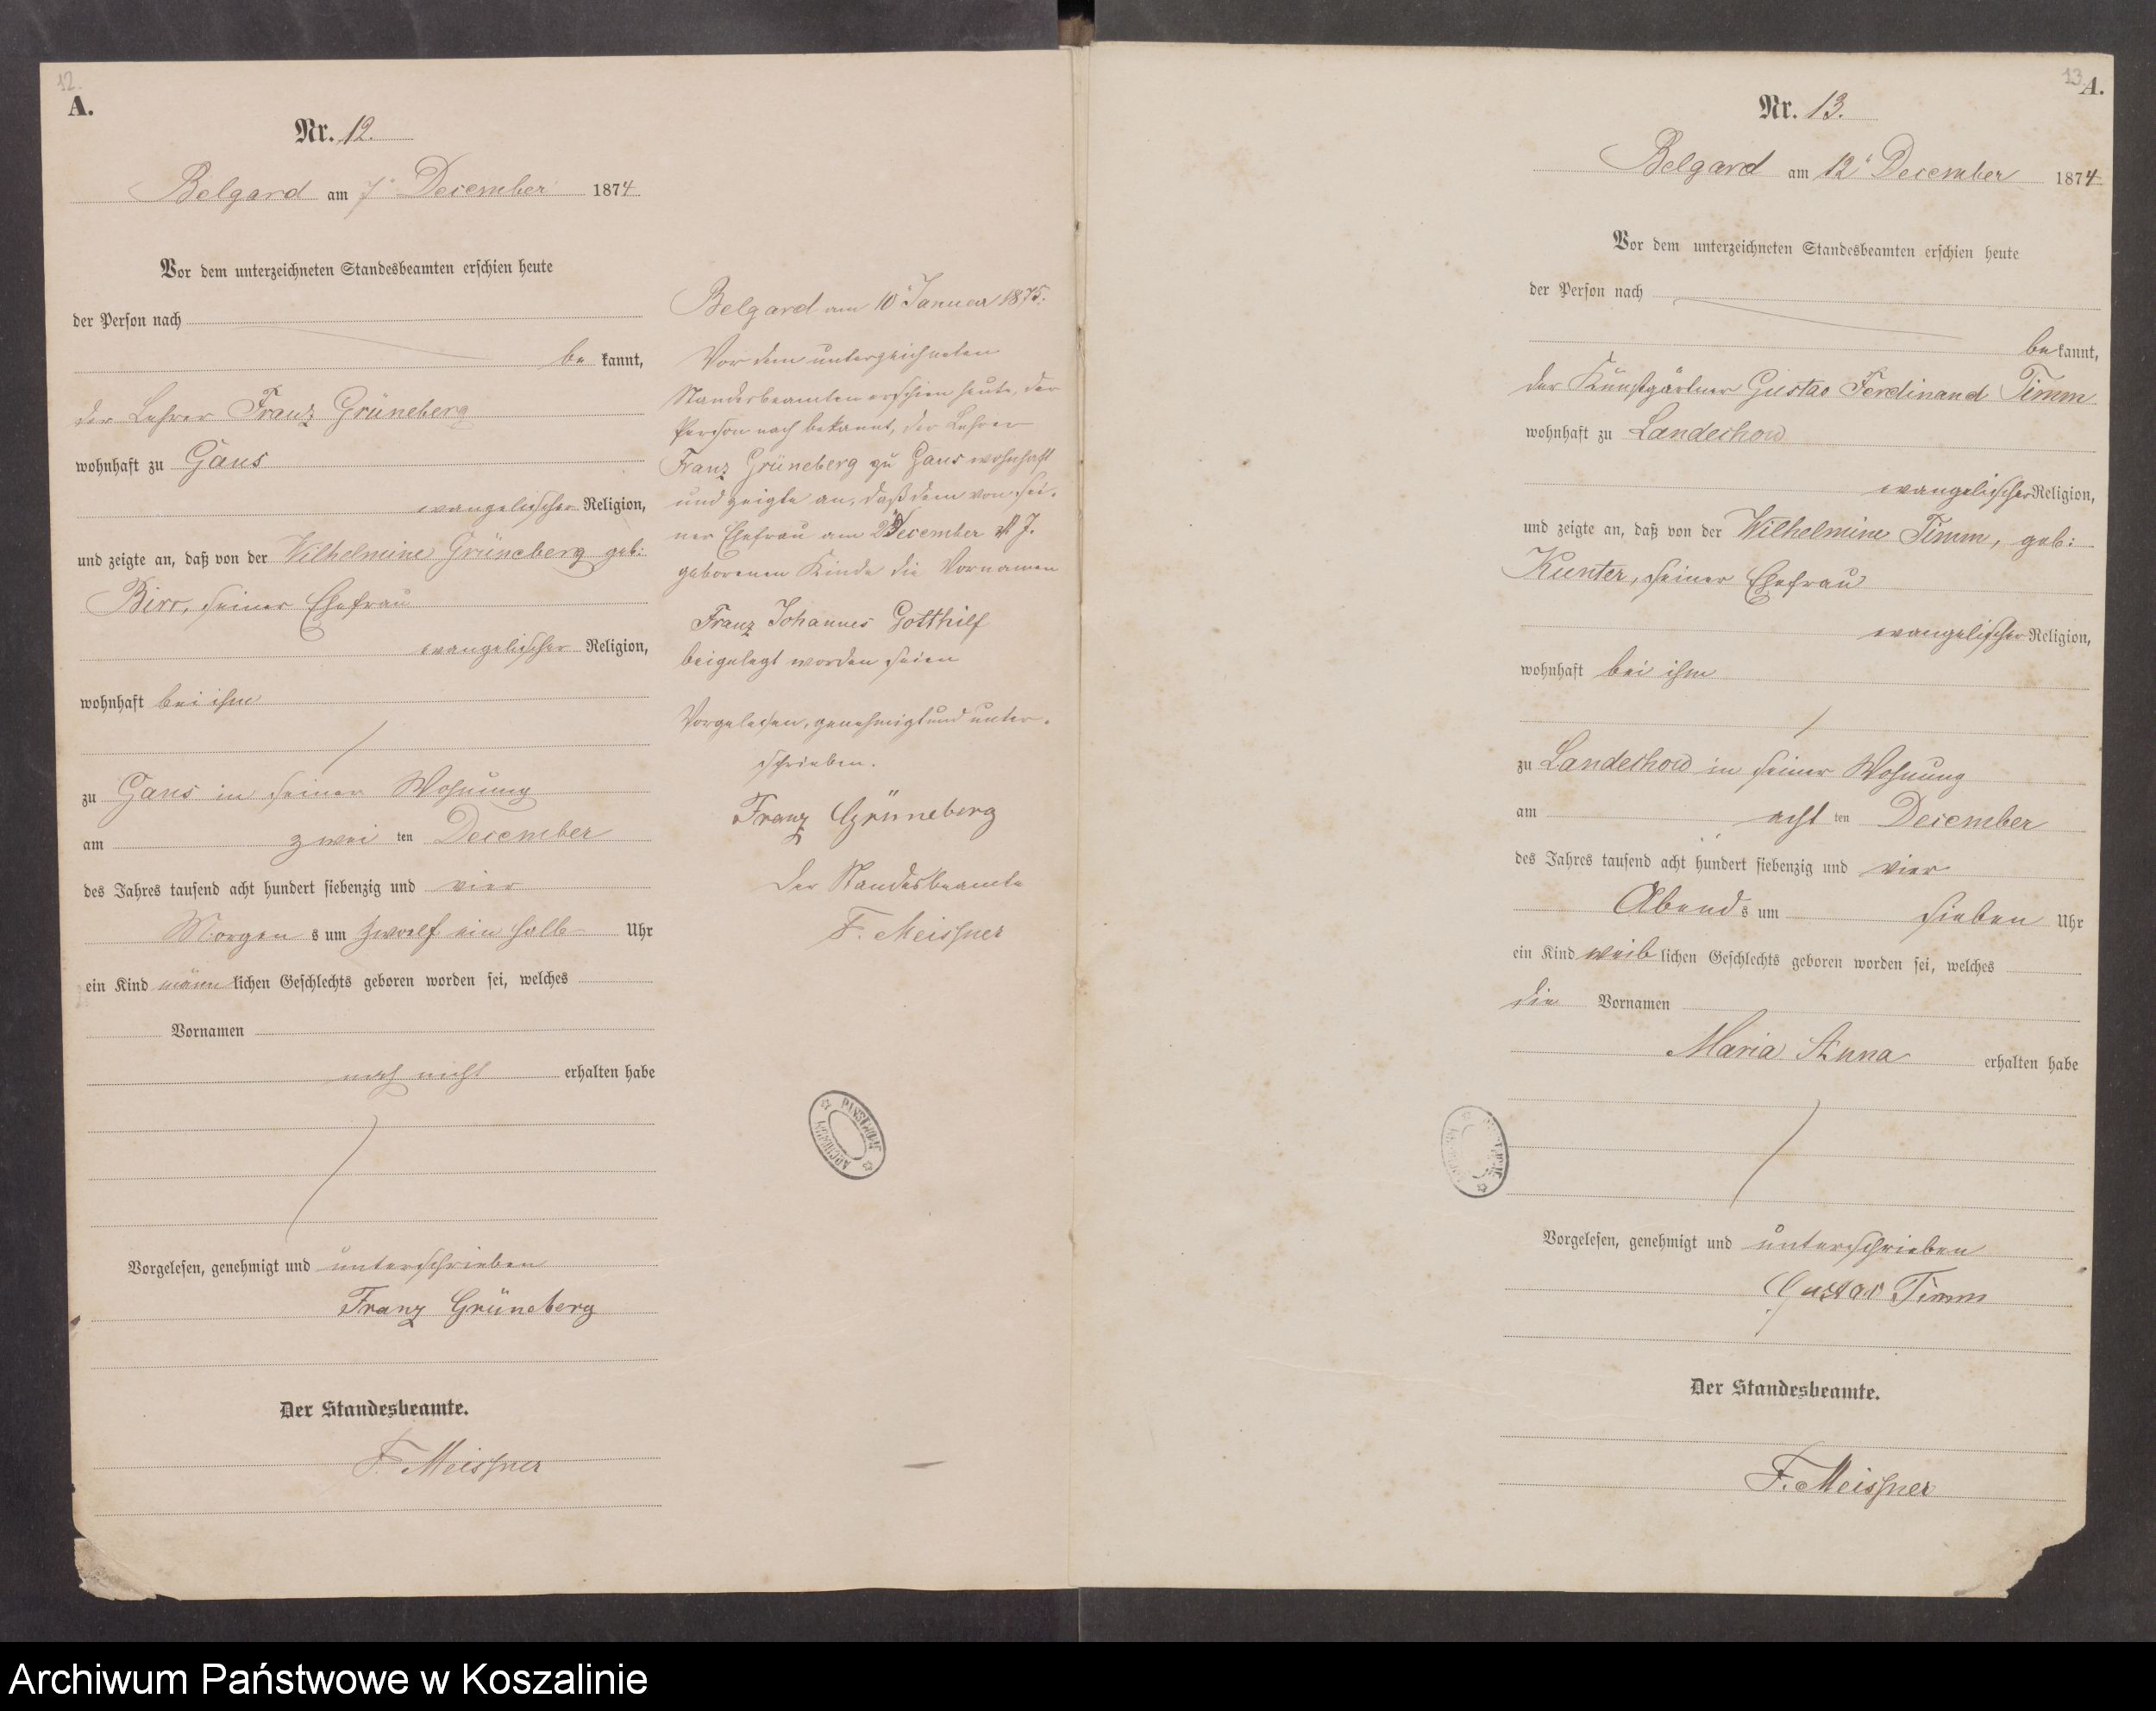 12.
A.
Nr. 12.
Belgard am 7t December 1874
Vor dem unterzeichneten Standesbeamten erschien heute
der Person nach
be kannt,
der Lehrer Franz Grüneberg
wohnhaft zu Gans
evangelischer Religion,
und zeigte an, daß von der Wilhelmine Grüneberg geb:
Birr, seiner Ehefrau
evangelischer Religion,
wohnhaft bei ihm
zu Gans in seiner Wohnung
am zwei ten December
des Jahres tausend acht hundert siebenzig und vier
Morgen s um zwoelf ein halb Uhr
ein Kind männ lichen Geschlechts geboren worden sei, welches
Vornamen
noch nicht erhalten habe
Vorgelesen, genehmigt und unterschrieben
Franz Grüneberg
Der Standesbeamte.
F. Meissner
Belgard am 10t Januar 1875.
Vor dem unterzeichneten
Standesbeamten erschien heute, der
Person nach bekannt, der Lehrer
Franz Grüneberg zu Gans wohnhaft
und zeigte an, daß dem von sei-
ner Ehefrau am 2 December J.
geborenen Kinde die Vornamen
Franz Johannes Gotthilf
beigelegt worden seien
Vorgelesen, genehmigt und unter-
schrieben.
Franz Grüneberg
Der Standesbeamte
F. Meissner
ARCHIWUM PAŃSTWOWE
13.
A.
Nr. 13.
Belgard am 12t December 1874
Vor dem unterzeichneten Standesbeamten erschien heute
der Person nach
be kannt,
der Kunstgärtner Gustav Ferdinand Timm
wohnhaft zu Landechow
evangelischer Religion,
und zeigte an, daß von der Wilhelmine Timm, geb:
Kunter, seiner Ehefrau
evangelischer Religion,
wohnhaft bei ihm
zu Landechow in seiner Wohnung
am acht ten December
des Jahres tausend acht hundert siebenzig und vier
Abend s um sieben Uhr
ein Kind weib lichen Geschlechts geboren worden sei, welches
die Vornamen
Maria Anna erhalten habe
Vorgelesen, genehmigt und unterschrieben
Gustav Timm
Der Standesbeamte.
F. Meissner
Archiwum Państwowe w Koszalinie